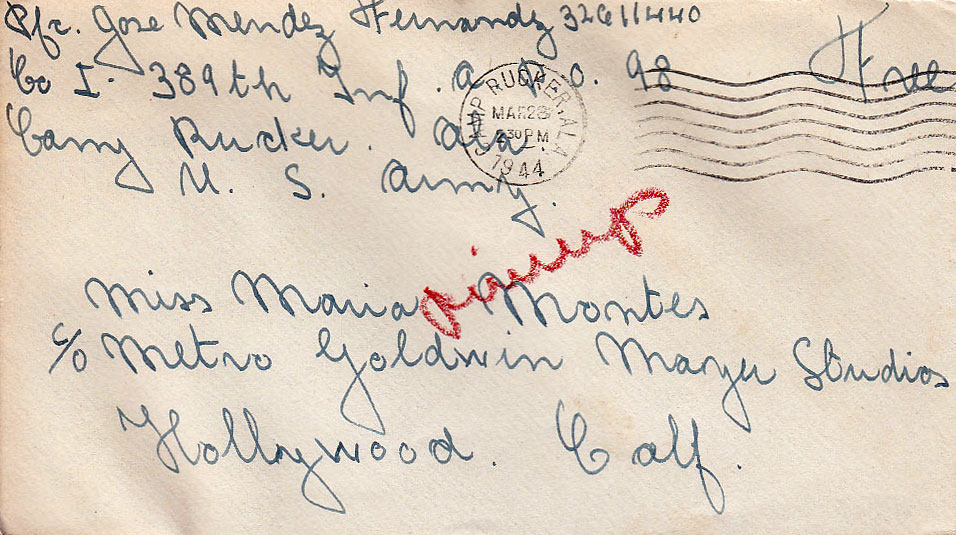 Pfc. Jose Mendez Fernandez 32611440
Co I. 389th Inf. A.P.O. 98 Free
Camp Rucker. Ala.
U. S. Army.
CAMP RUCKER, ALA.
MAR 28
2 30 PM
1944
pinup
Miss Maria Montes
c/o Metro Goldwin Mayer Studios
Hollywood. Calf.